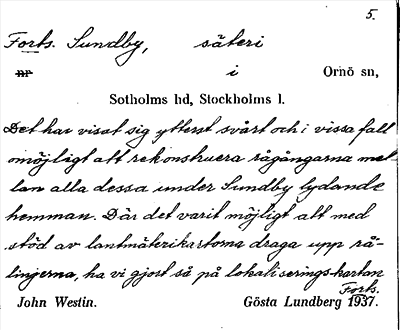 5.
Forts. Sundby, säteri
nr i Ornö sn,
Sotholms hd, Stockholms l.
Det har visat sig ytterst svårt och i vissa fall
omöjligt att rekonstruera rågångarna mel-
lan alla dessa under Sundby lydande
hemman. Där det varit möjligt att med
stöd av lantmäterikartorna draga upp rå-
linjerna, ha vi gjort så på lokaliserings-kartan
Forts.
John Westin. Gösta Lundberg 1937.